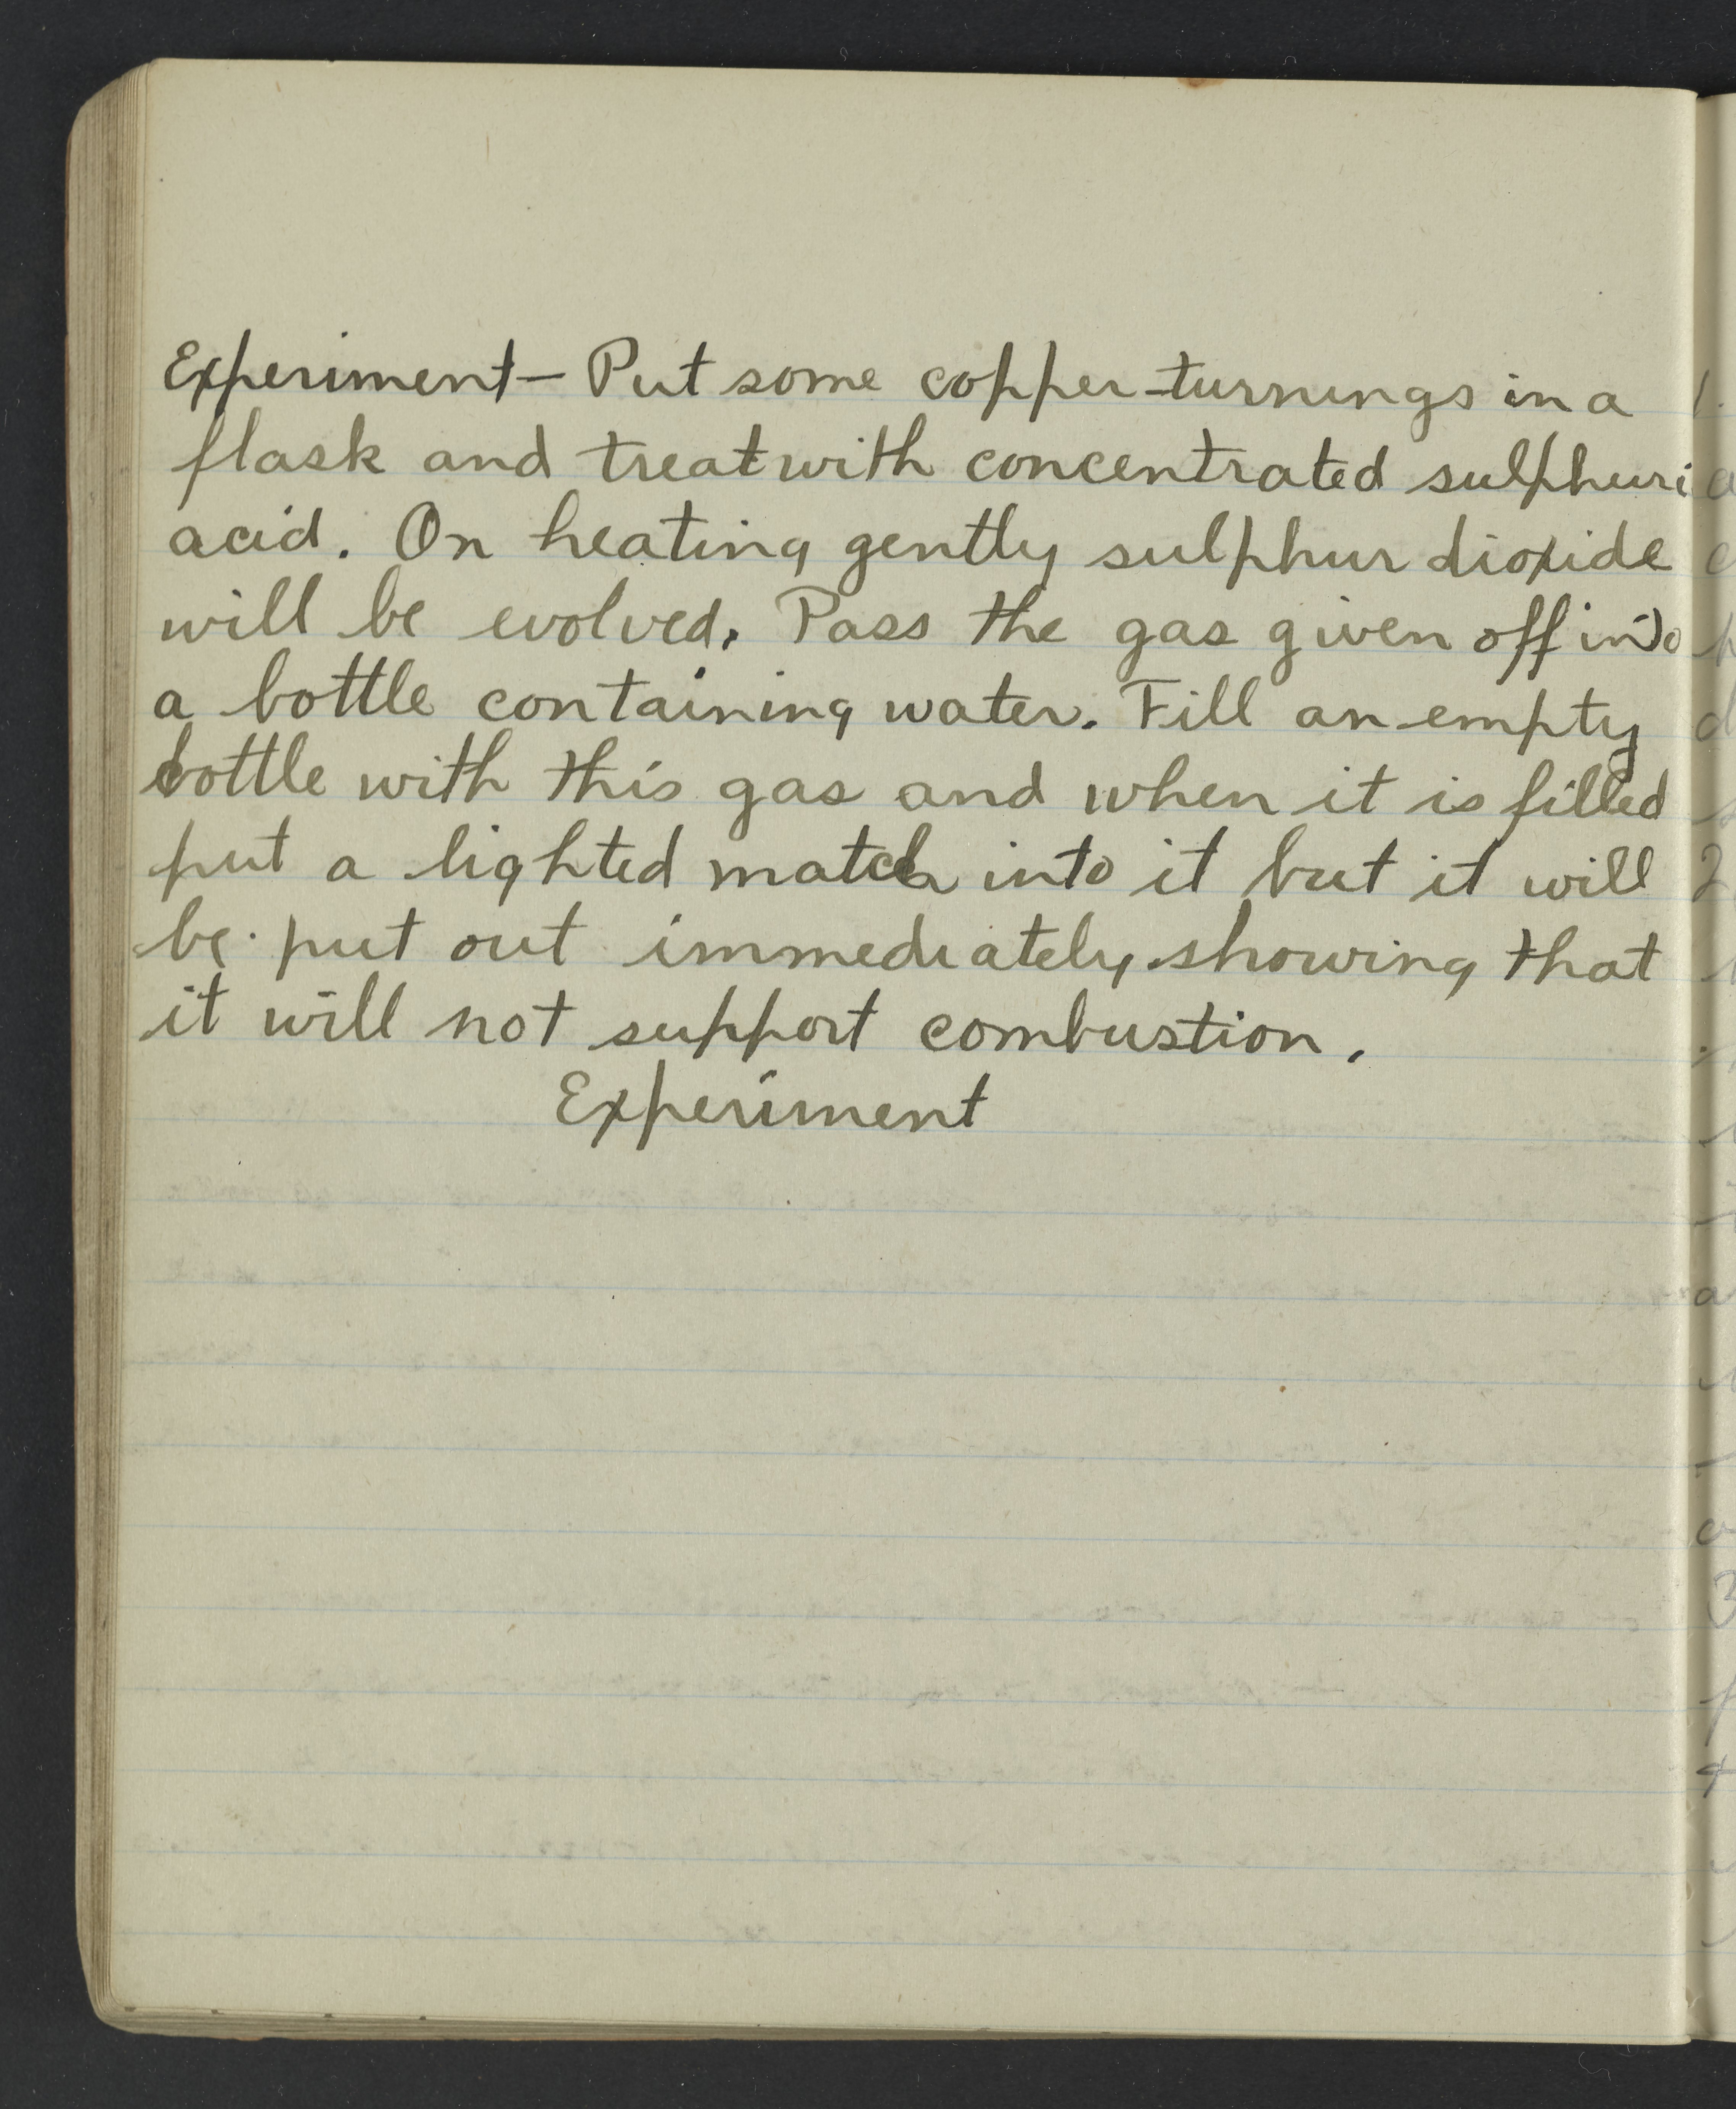 Experiment – Put some copper-turnings in a
flask and treat with concentrated sulphuri
acid. On heating gently sulphur dioxide
will be evolved. Pass the gas given off into
a bottle containing water. Fill an empty
bottle with this gas and when it is filled
put a lighted match into it but it will
be put out immediately showing that
it will not support combustion.
Experiment